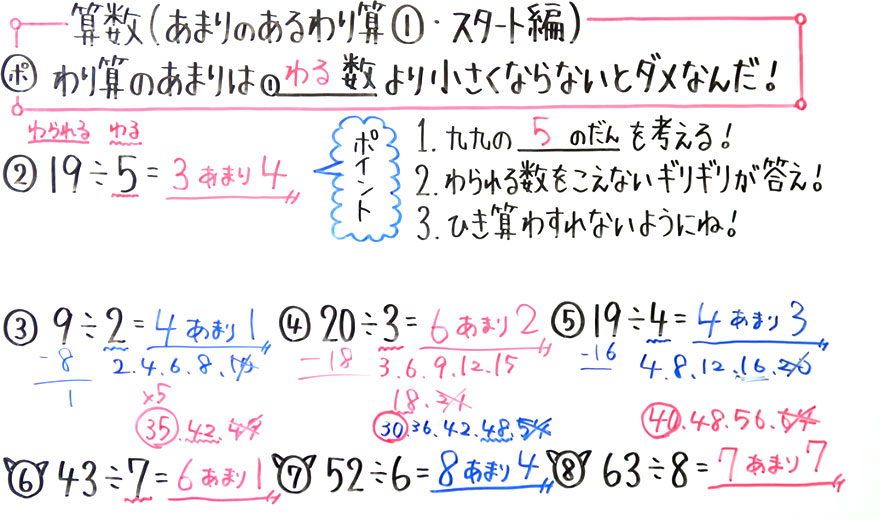 算数(あまりのあるわり算①・スタート編)
ポ わり算のあまりは① わる 数 より小さくならないとダメなんだ!
わられる わる
② 19÷5= 3あまり4
ポイント
1. 九九の 5 のだん を考える!
2. わられる数をこえないギリギリが答え!
3. ひき算わすれないようにね!
③ 9÷2= 4あまり1
-8 2.4.6.8.10
1
④ 20÷3= 6あまり2
-18 3.6.9.12.15
18.21
⑤ 19÷4= 4あまり3
-16 4.8.12.16.20
×5
35.42.49
⑥ 43÷7= 6あまり1
30.36.42.48.54
⑦ 52÷6= 8あまり4
40.48.56.64
⑧ 63÷8= 7あまり7